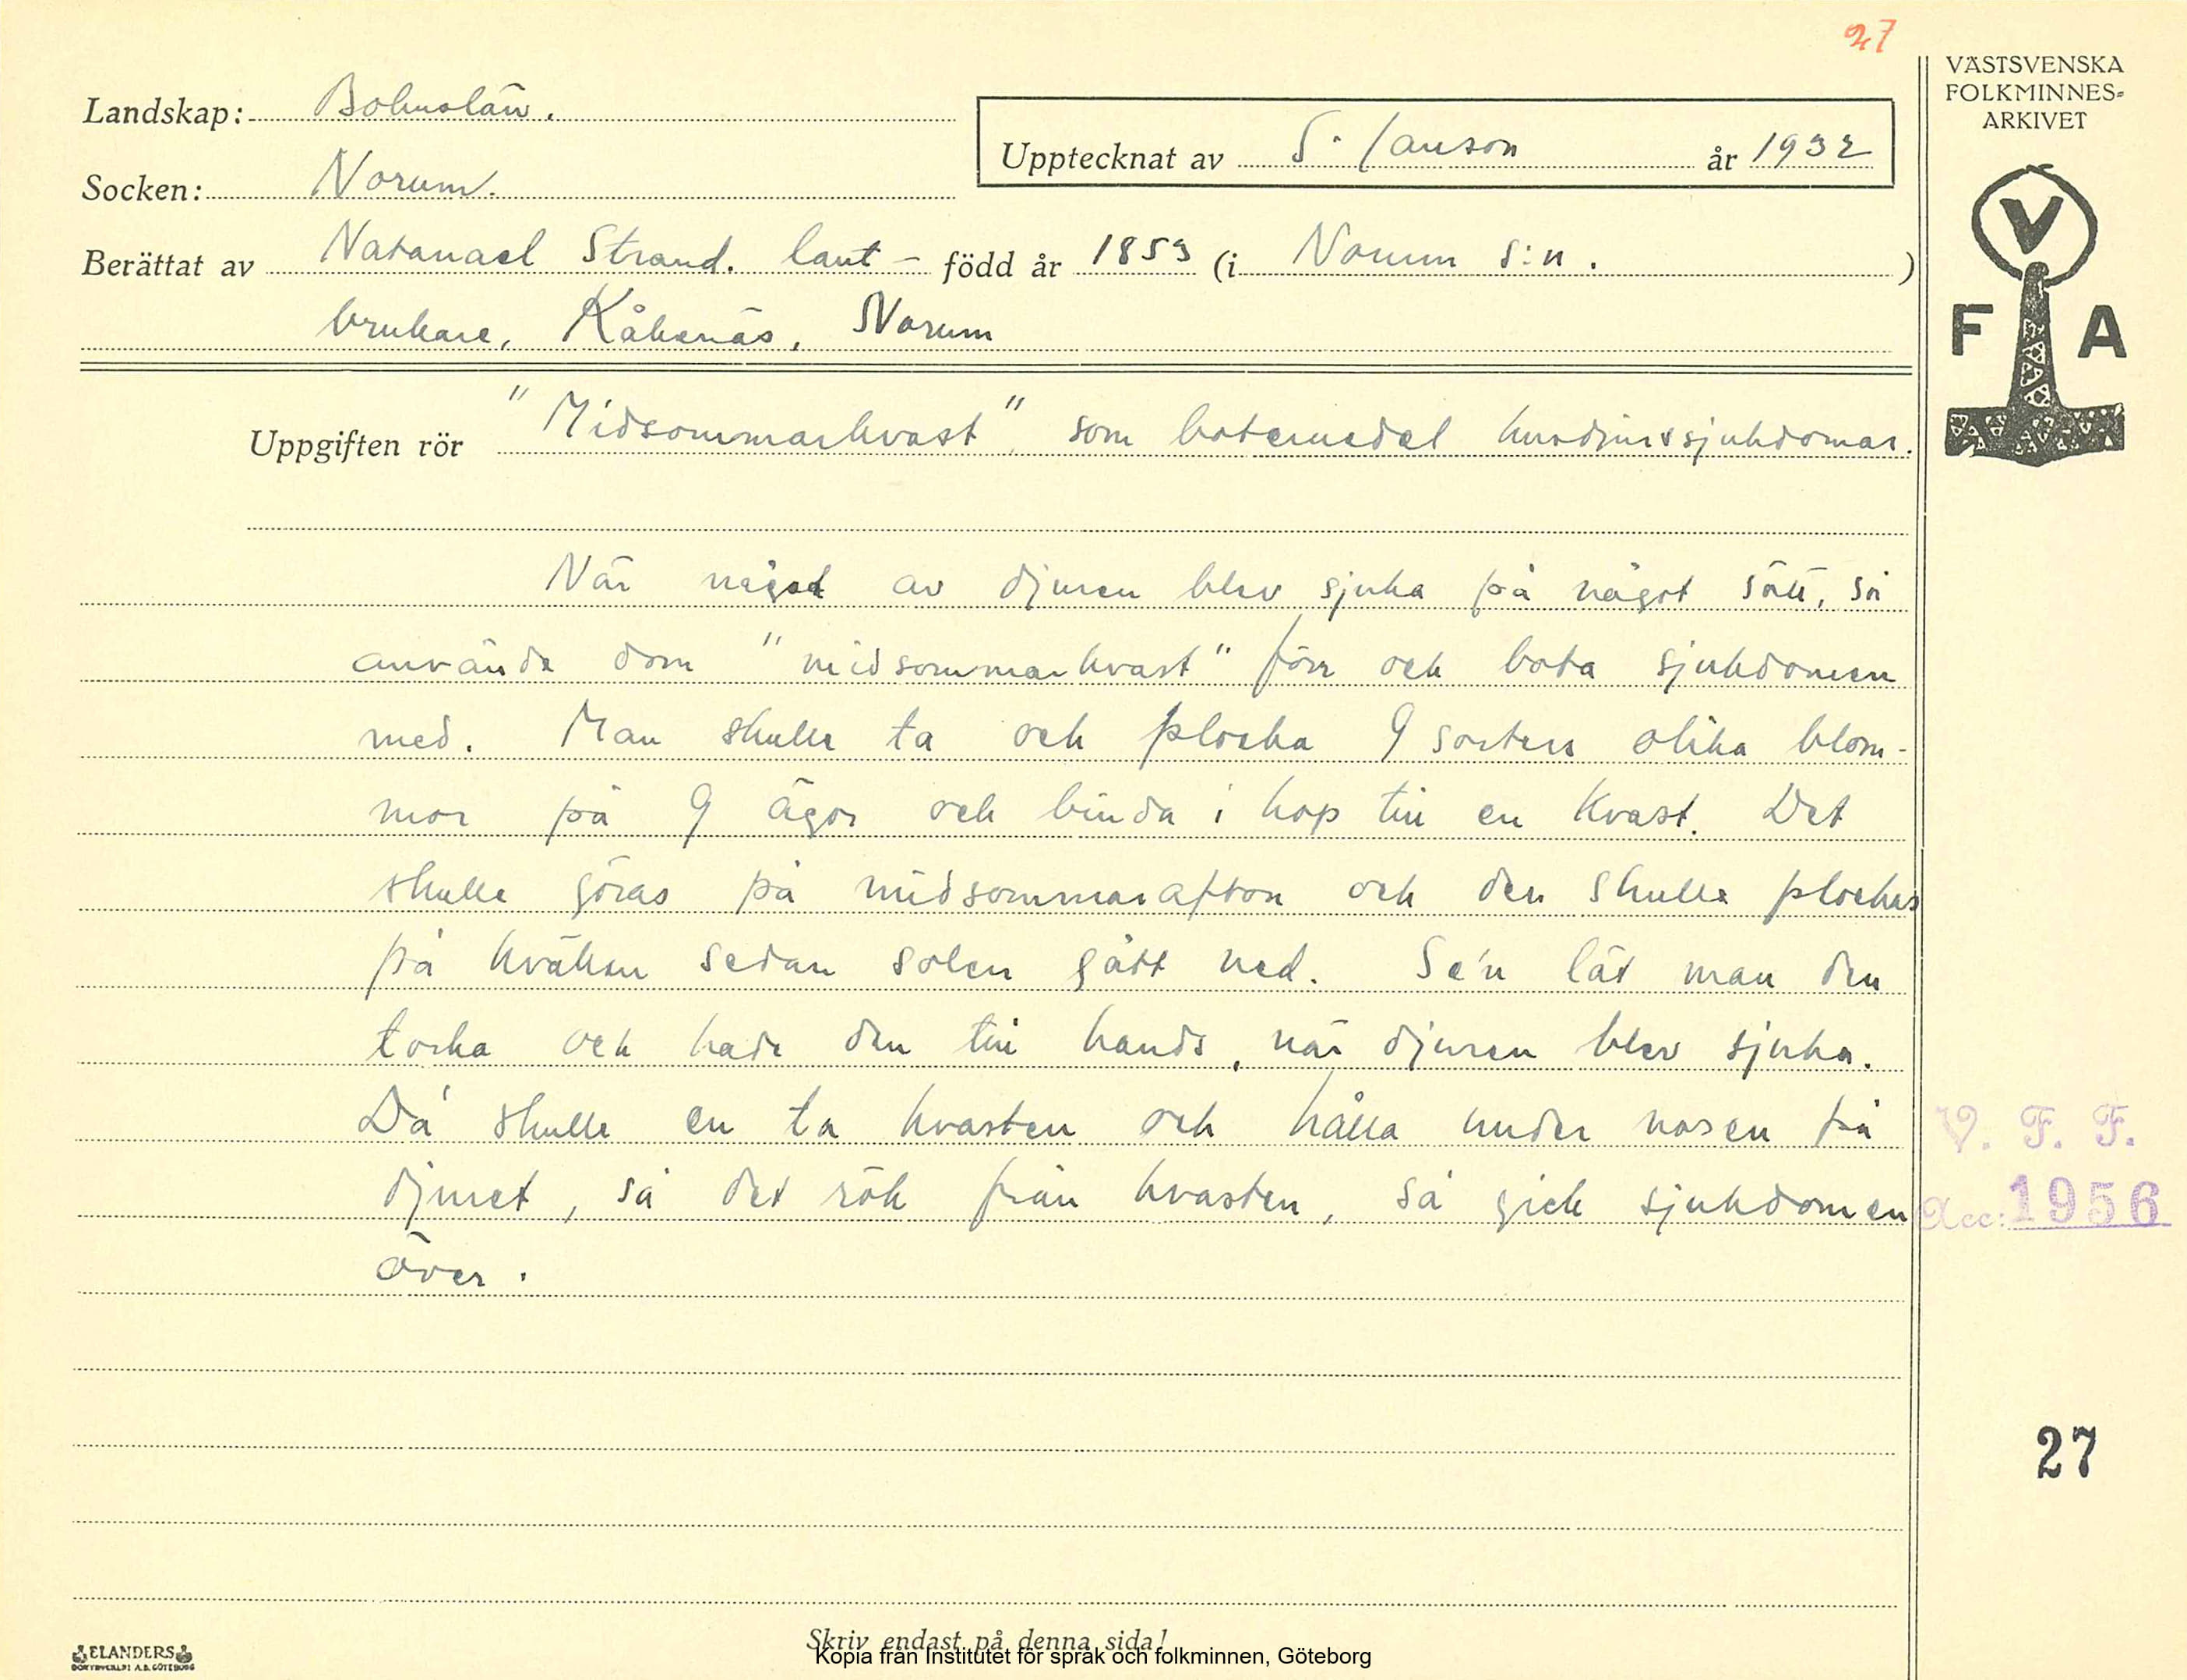 27
VÄSTSVENSKA
FOLKMINNES-
ARKIVET
Landskap: Bohuslän.
Upptecknat av S. Janson år 1932
Socken: Norum.
Berättat av Natanael Strand. lant- född år 1853 (i Norum s:n.)
brukare, Kåkenäs, Norum
V
F A
Uppgiften rör "Midsommarkvast" som botemedel husdjurssjukdomar.
När något av djuren blev sjuka på något sätt, så
använde dom "midsommarkvast" förr och bota sjukdomen
med. Man skulle ta och plocka 9 sorters olika blom-
mor på 9 ägor och binda i hop till en kvast. Det
skulle göras på midsommarafton och den skulle plockas
på kvällen sedan solen gått ned. Se'n lät man den
torka och hade den till hands, när djuren blev sjuka.
Då skulle en ta kvasten och hålla under nosen på
djuret, så det rök från kvasten, så gick sjukdomen
över.
V. F. F.
Acc: 1956
27
Skriv endast på denna sida!
Kopia från Institutet för språk och folkminnen, Göteborg
ELANDERS
BOKTRYCKERI A.B. GÖTEBORG